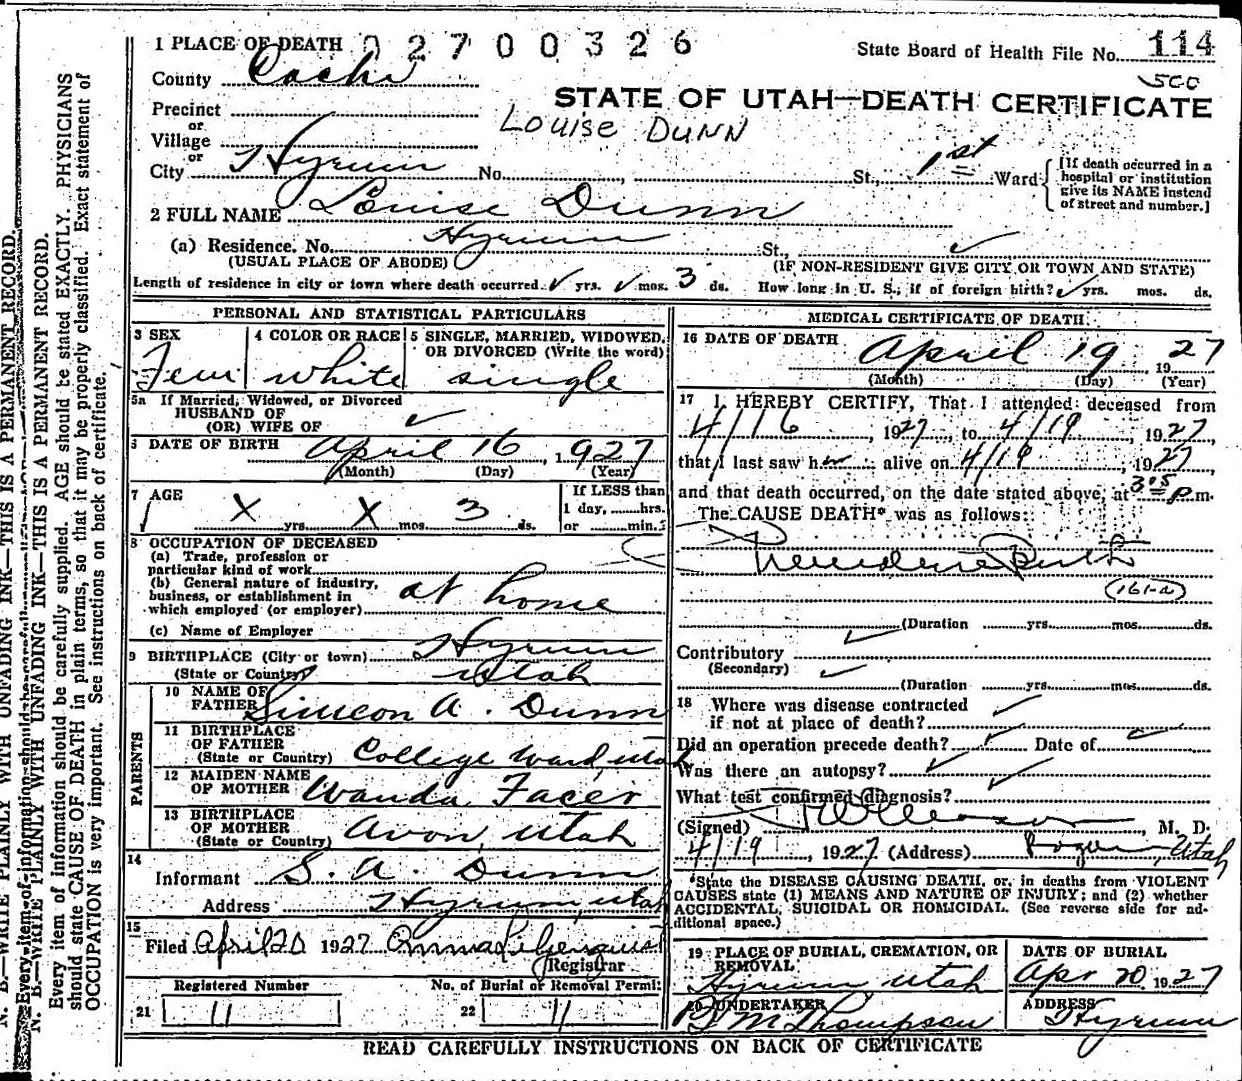 1 PLACE OF DEATH 02700326 State Board of Health File No. 114
County Cache 500
STATE OF UTAH—DEATH CERTIFICATE
Precinct
or
Village Louise Dunn
or
City Hyrum No. , St., 1st Ward
[If death occurred in a
hospital or institution
give its NAME instead
of street and number.]
2 FULL NAME Louise Dunn
(a) Residence. No. Hyrum St.,
(USUAL PLACE OF ABODE) (IF NON-RESIDENT GIVE CITY OR TOWN AND STATE)
Length of residence in city or town where death occurred. ✓ yrs. ✓ mos. 3 ds. How long in U. S., if of foreign birth? ✓ yrs. mos. ds.
PERSONAL AND STATISTICAL PARTICULARS
3 SEX 4 COLOR OR RACE 5 SINGLE, MARRIED, WIDOWED,
OR DIVORCED (Write the word)
Fem white single
5a If Married, Widowed, or Divorced
HUSBAND OF
(OR) WIFE OF ✓
6 DATE OF BIRTH April 16, 1927
(Month) (Day) (Year)
7 AGE If LESS than
1 day, hrs.
X yrs. X mos. 3 ds. or min.
8 OCCUPATION OF DECEASED
(a) Trade, profession or
particular kind of work
(b) General nature of industry,
business, or establishment in at home
which employed (or employer)
(c) Name of Employer
9 BIRTHPLACE (City or town) Hyrum
(State or Country) Utah
PARENTS
10 NAME OF
FATHER Simeon A. Dunn
11 BIRTHPLACE
OF FATHER
(State or Country) College Ward, Utah
12 MAIDEN NAME
OF MOTHER Wanda Facer
13 BIRTHPLACE
OF MOTHER
(State or Country) Avon, Utah
14
Informant S. A. Dunn
Address Hyrum, Utah
15
Filed April 20 1927
Registrar
Registered Number No. of Burial or Removal Permit
21 11 22 11
MEDICAL CERTIFICATE OF DEATH
16 DATE OF DEATH April 19 1927
(Month) (Day) (Year)
17 I HEREBY CERTIFY, That I attended deceased from
4/16, 1927, to 4/19, 1927
that I last saw her alive on 4/19, 1927,
and that death occurred, on the date stated above, at 3:15 p.m.
The CAUSE DEATH* was as follows:
Premature Birth
(161-a)
(Duration yrs. mos. ds.
Contributory ✓
(Secondary) ✓
(Duration yrs. mos. ds.
18 Where was disease contracted
if not at place of death? ✓
Did an operation precede death? ✓ Date of ✓
Was there an autopsy? ✓
What test confirmed diagnosis? ✓
(Signed) , M. D.
4/19, 1927 (Address) Utah
*State the DISEASE CAUSING DEATH, or, in deaths from VIOLENT
CAUSES state (1) MEANS AND NATURE OF INJURY; and (2) whether
ACCIDENTAL, SUICIDAL OR HOMICIDAL. (See reverse side for ad-
ditional space.)
19 PLACE OF BURIAL, CREMATION, OR DATE OF BURIAL
REMOVAL
Hyrum Utah Apr 20 1927
20 UNDERTAKER ADDRESS
M Thompson Hyrum
READ CAREFULLY INSTRUCTIONS ON BACK OF CERTIFICATE
N. B.—WRITE PLAINLY WITH UNFADING INK—THIS IS A PERMANENT RECORD.
Every item of information should be
N. B.—WRITE PLAINLY WITH UNFADING INK—THIS IS A PERMANENT RECORD.
Every item of information should be carefully supplied. AGE should be stated EXACTLY. PHYSICIANS
should state CAUSE OF DEATH in plain terms, so that it may be properly classified. Exact statement of
OCCUPATION is very important. See instructions on back of certificate.